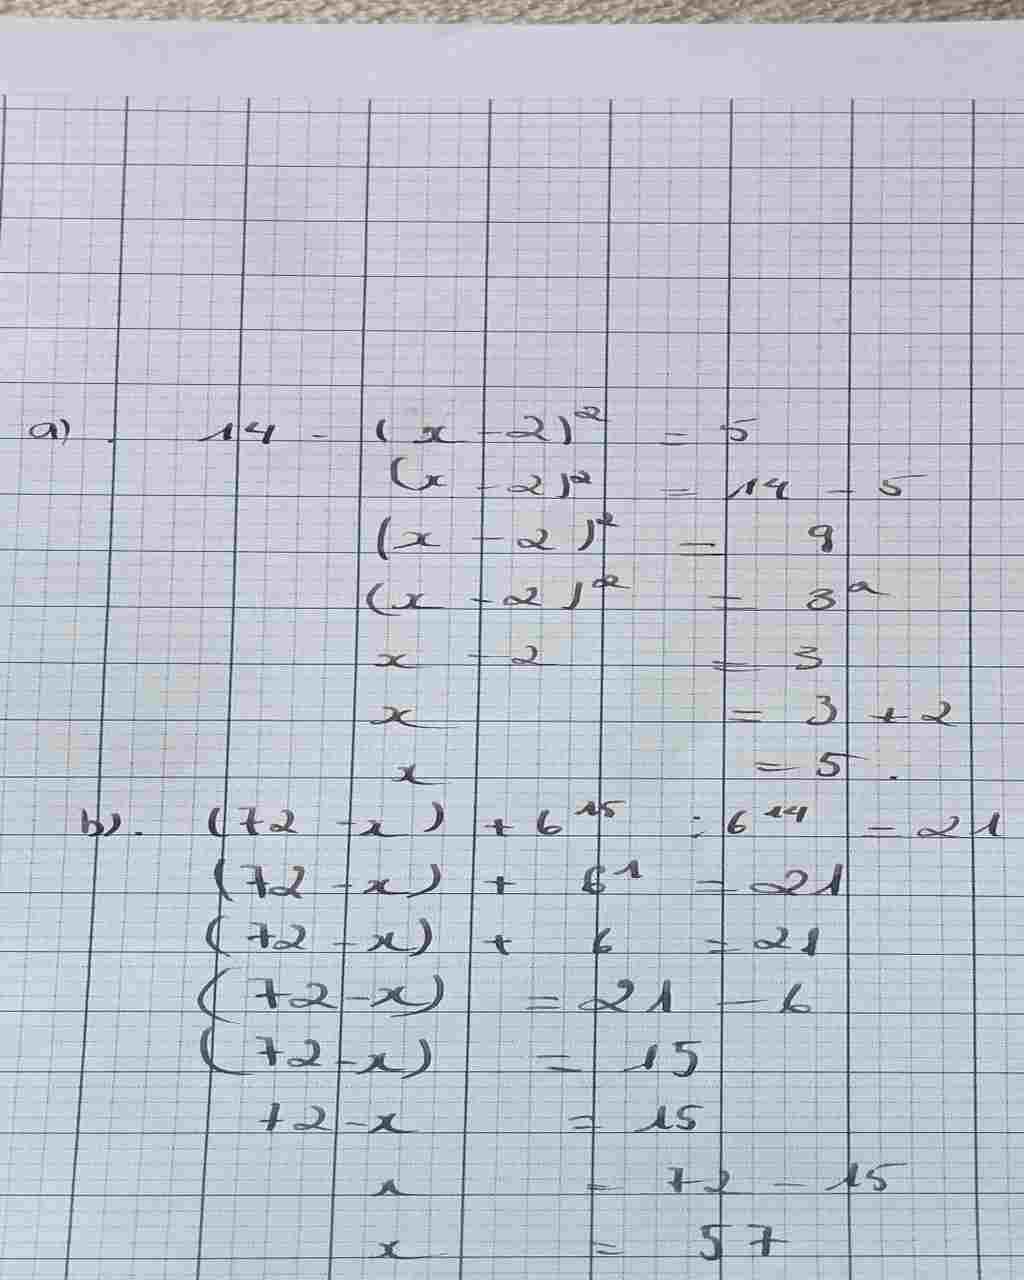 a). 14 - (x - 2)² = 5
(x - 2)² = 14 - 5
(x - 2)² = 9
(x - 2)² = 3²
x - 2 = 3
x = 3 + 2
x = 5.
b). (72 - x) + 6¹⁵ : 6¹⁴ = 21
(72 - x) + 6¹ = 21
(72 - x) + 6 = 21
(72 - x) = 21 - 6
(72 - x) = 15
72 - x = 15
x = 72 - 15
x = 57